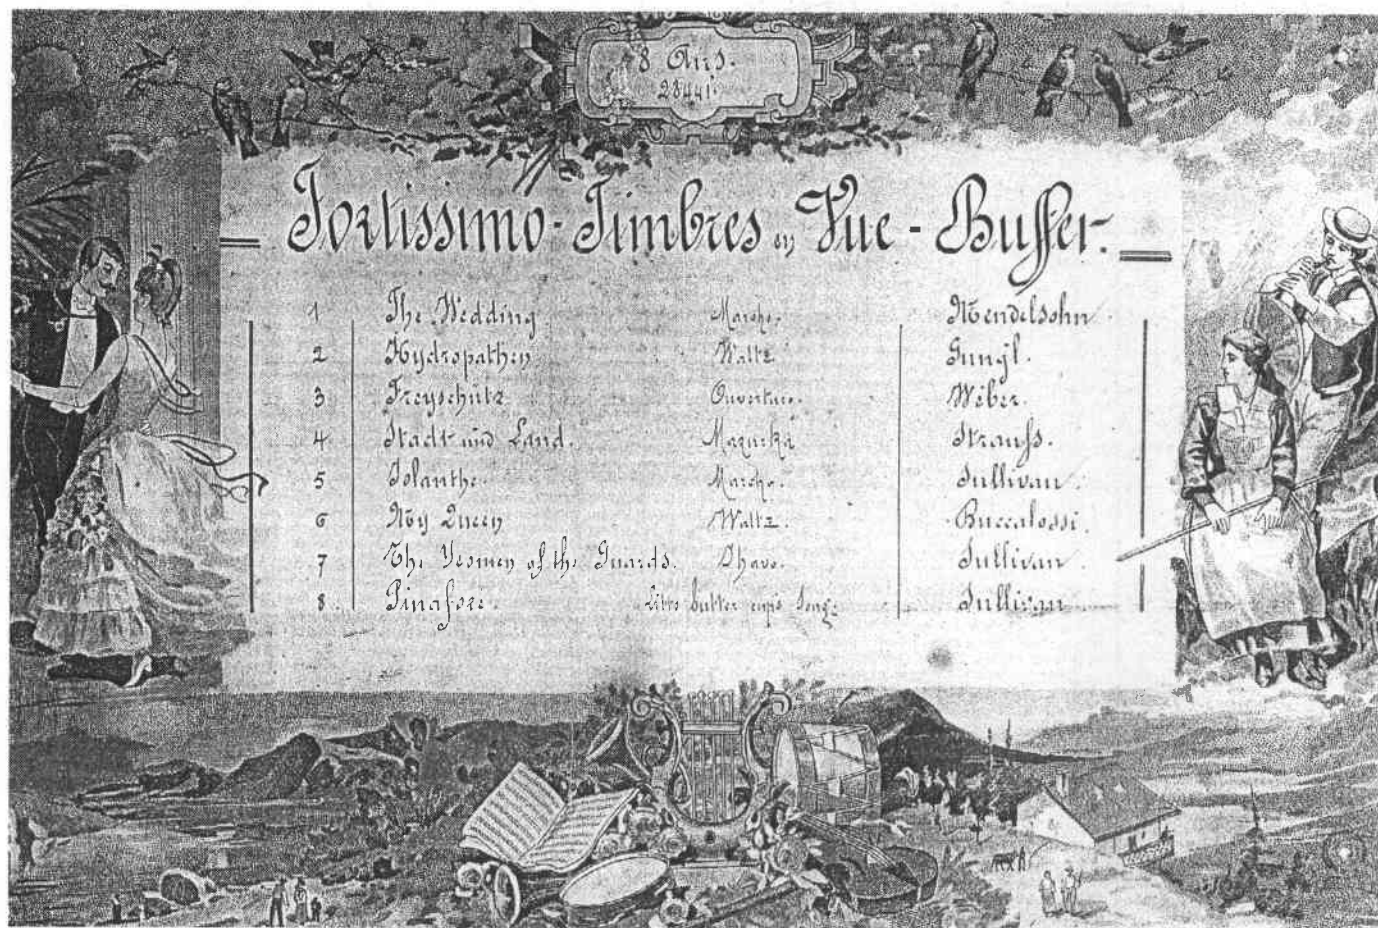 8 Airs.
28441.
Fortissimo - Timbres en Vue - Buffet.
1 The Wedding Marche. Mendelsohn
2 Hydropathen Waltz Gungl.
3 Freyschütz Ouverture. Wéber.
4 Stadt und Land. Mazurka Strauss.
5 Iolanthe. Marche. Sullivan.
6 My Queen Waltz. Buccalossi.
7 The Yeomen of the Guards. Sullivan.
8. Pinafore. butter cup's Song Sullivan